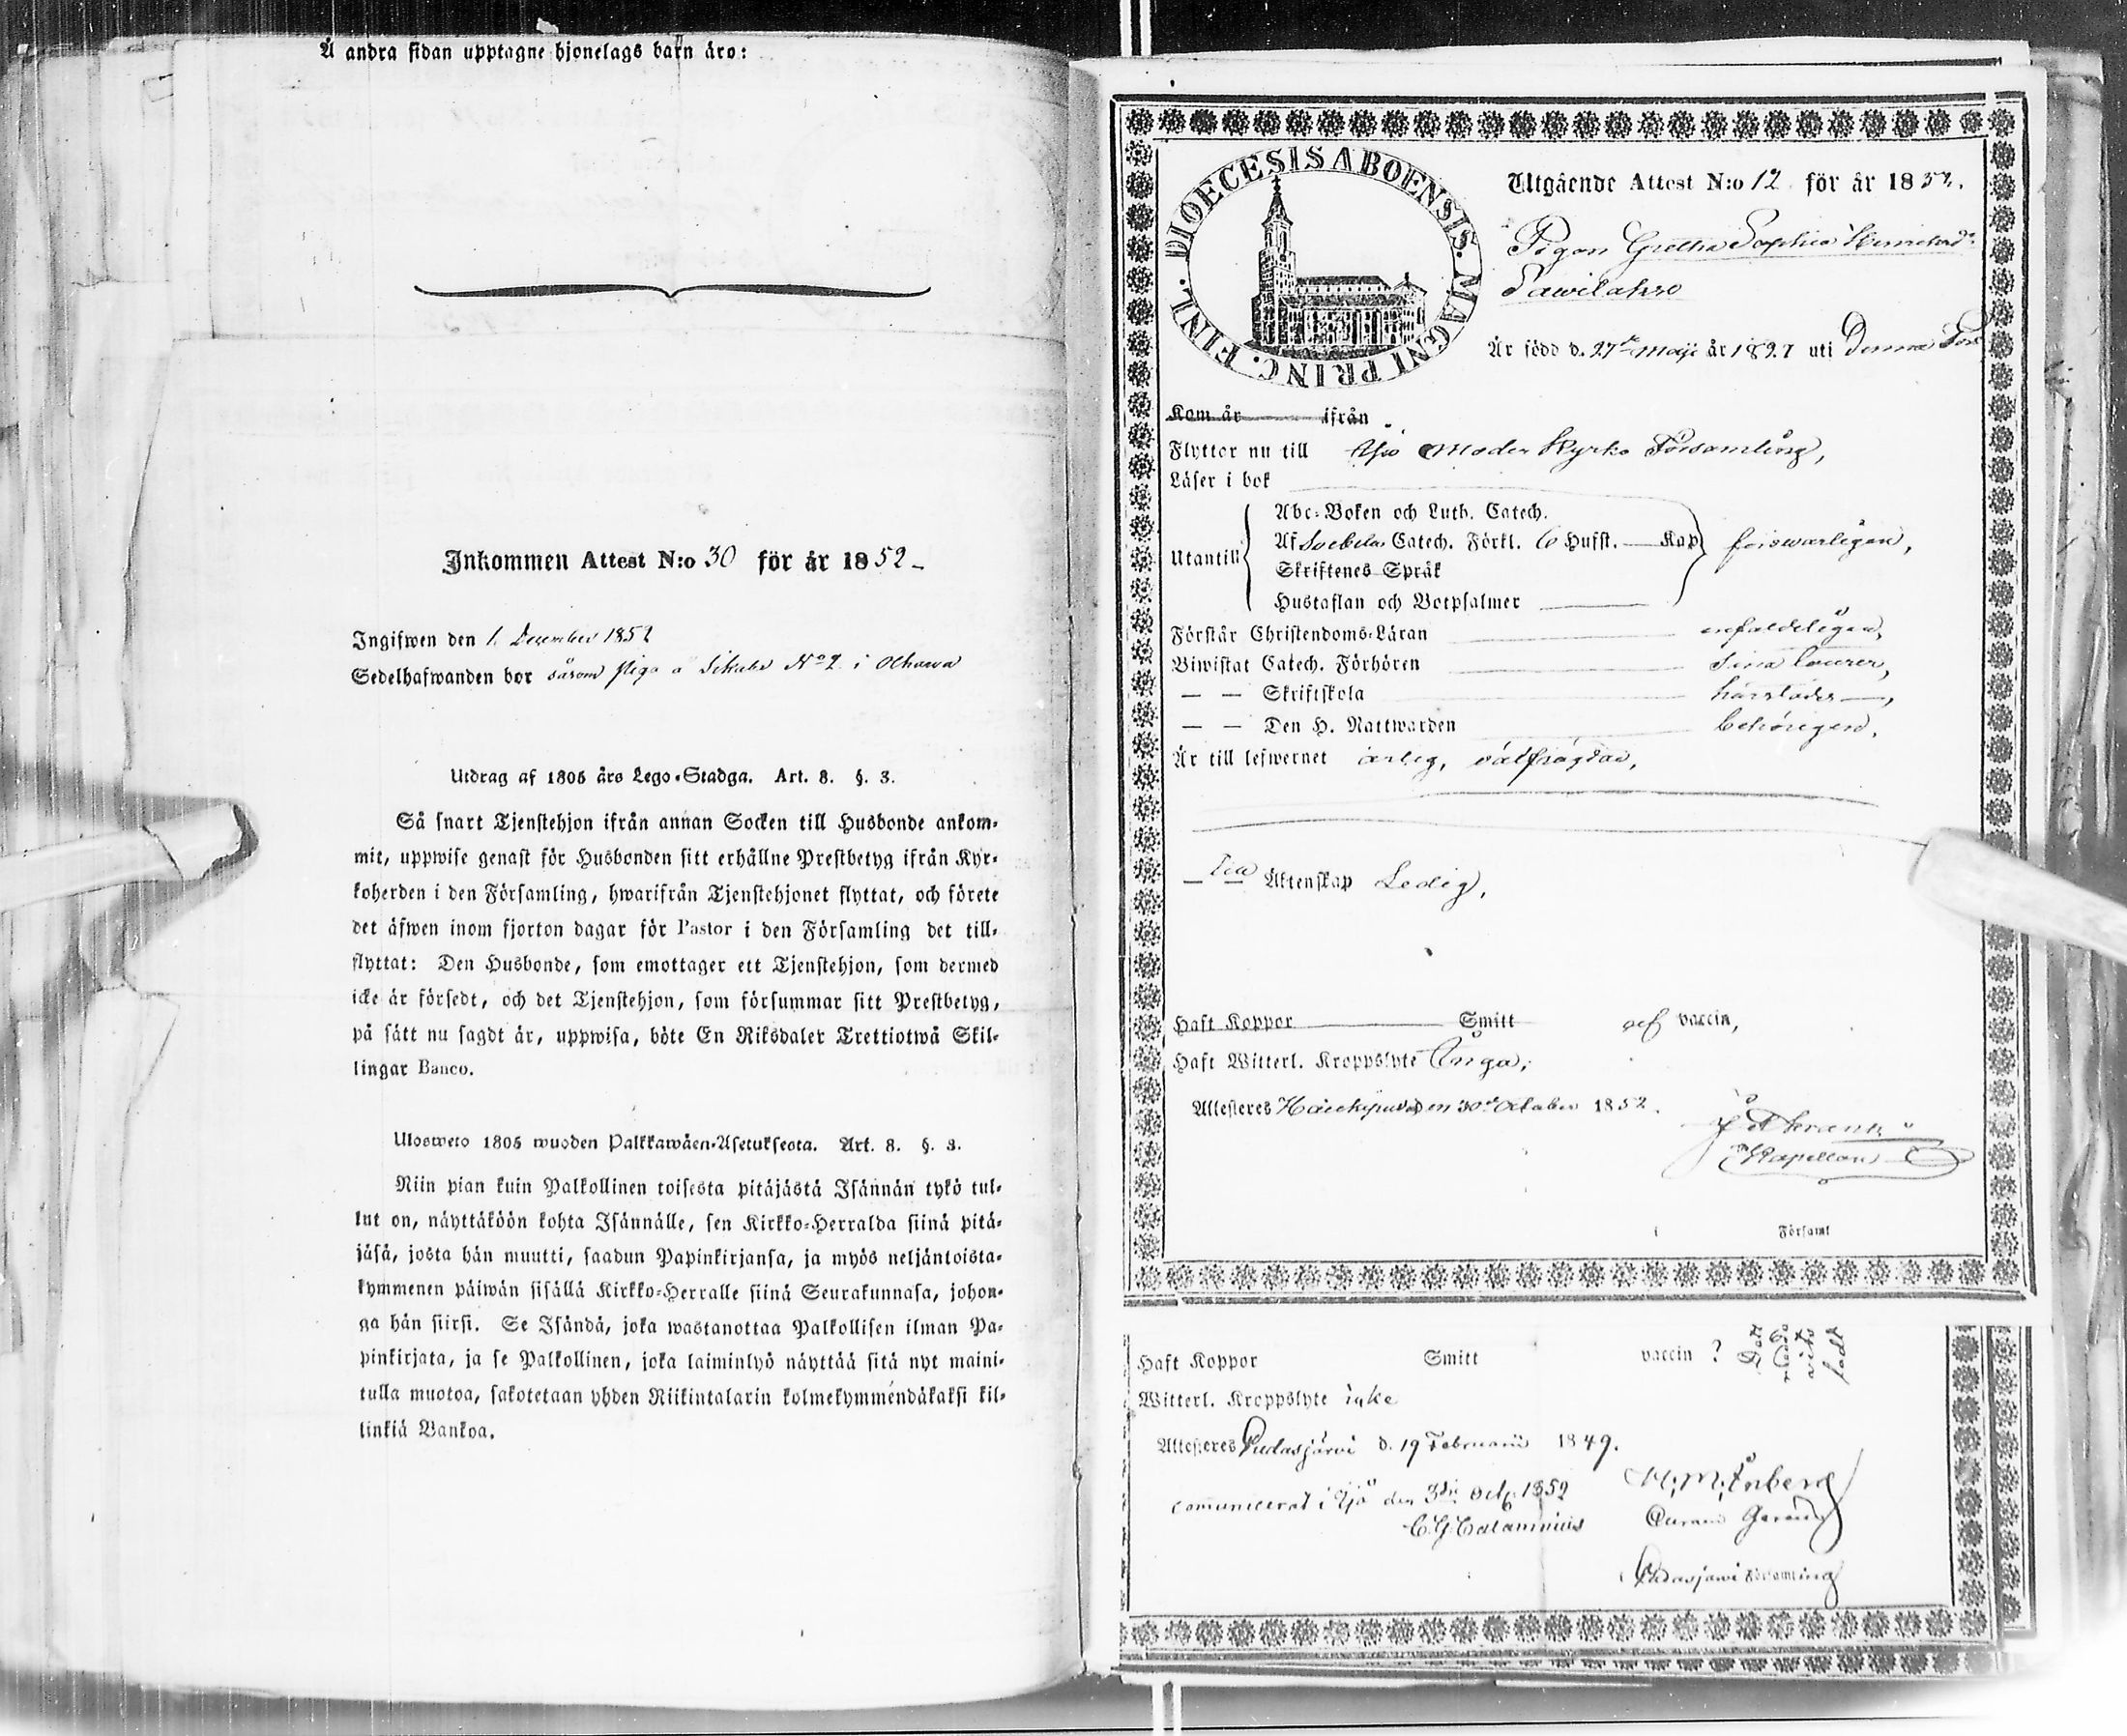 Å andra sidan upptagne hjonelags barn äro:
Inkommen Attest N:o 30 för år 1852
Ingifwen den 1 December 1852
Sedelhafwanden bor såsom piga å Sikala No 2 i Olhawa
Utdrag af 1805 års Lego-Stadga. Art. 8. §. 3.
Så snart Tjenstehjon ifrån annan Socken till Husbonde ankom-
mit, uppwise genast för Husbonden sitt erhållne Prestbetyg ifrån Kyr-
koherden i den Församling, hwarifrån Tjenstehjonet flyttat, och förete
det äfwen inom fjorton dagar för Pastor i den Församling det till-
flyttat: Den Husbonde, som emottager ett Tjenstehjon, som dermed
icke är försedt, och det Tjenstehjon, som försummar sitt Prestbetyg,
på sätt nu sagdt är, uppwisa, böte En Riksdaler Trettiotwå Skil-
lingar Banco.
Ulosweto 1805 wuoden Palkkawäen-Asetuksesta. Art. 8. §. 3.
Niin pian kuin Palkollinen toisesta pitäjästä Isännän tykö tul-
lut on, näyttäköön kohta Isännälle, sen Kirkko-Herralda siinä pitä-
jäsä, josta hän muutti, saadun Papinkirjansa, ja myös neljäntoista-
kymmenen päiwän sisällä Kirkko-Herralle siinä Seurakunnasa, johon-
ga hän siirsi. Se Isändä, joka wastanottaa Palkollisen ilman Pa-
pinkirjata, ja se Palkollinen, joka laiminlyö näyttää sitä nyt maini-
tulla muotoa, sakotetaan yhden Riikintalarin kolmekymmendäkaksi kil-
linkiä Bankoa.
DIOECESIS ABOENSIS. MAGNI PRINC. FINL.
Utgående Attest N:o 12 för år 1852.
Pigan Gretha Sophia Henriksdr
Pawilakso
Är född d. 27de Maji år 1827 uti Denna För
Kom år ifrån
Flyttar nu till Ijo Moder Kyrko Församling,
Läser i bok
Abc-Boken och Luth. Catech.
Af Svebelii Catech. Förkl. 6 Hufst. Kap
Utantill förswarligen,
Skriftenes Språk
Hustaflan och Botpsalmer
Förstår Christendoms-Läran enfaldeligen,
Biwistat Catech. Förhören sina tourer,
— — Skriftskola härstädes
— — Den H. Nattwarden behörigen.
Är till lefwernet ärlig, välfrägdad,
— Till Äktenskap Ledig,
Haft Koppor Smitt af vaccin,
Haft Witterl. Kroppslyte Inga,
Attesteres Haukipudas den 30de October 1852.
Kapellan
Församl
Haft Koppor Smitt vaccin ? Det
Witterl. Kroppslyte icke
Attesteres Pudasjärvi d. 19 Februarii 1849.
communicerat i Ijo den 3die Oct. 1852
C. G. Calamnius
Pudasjärvi Församling